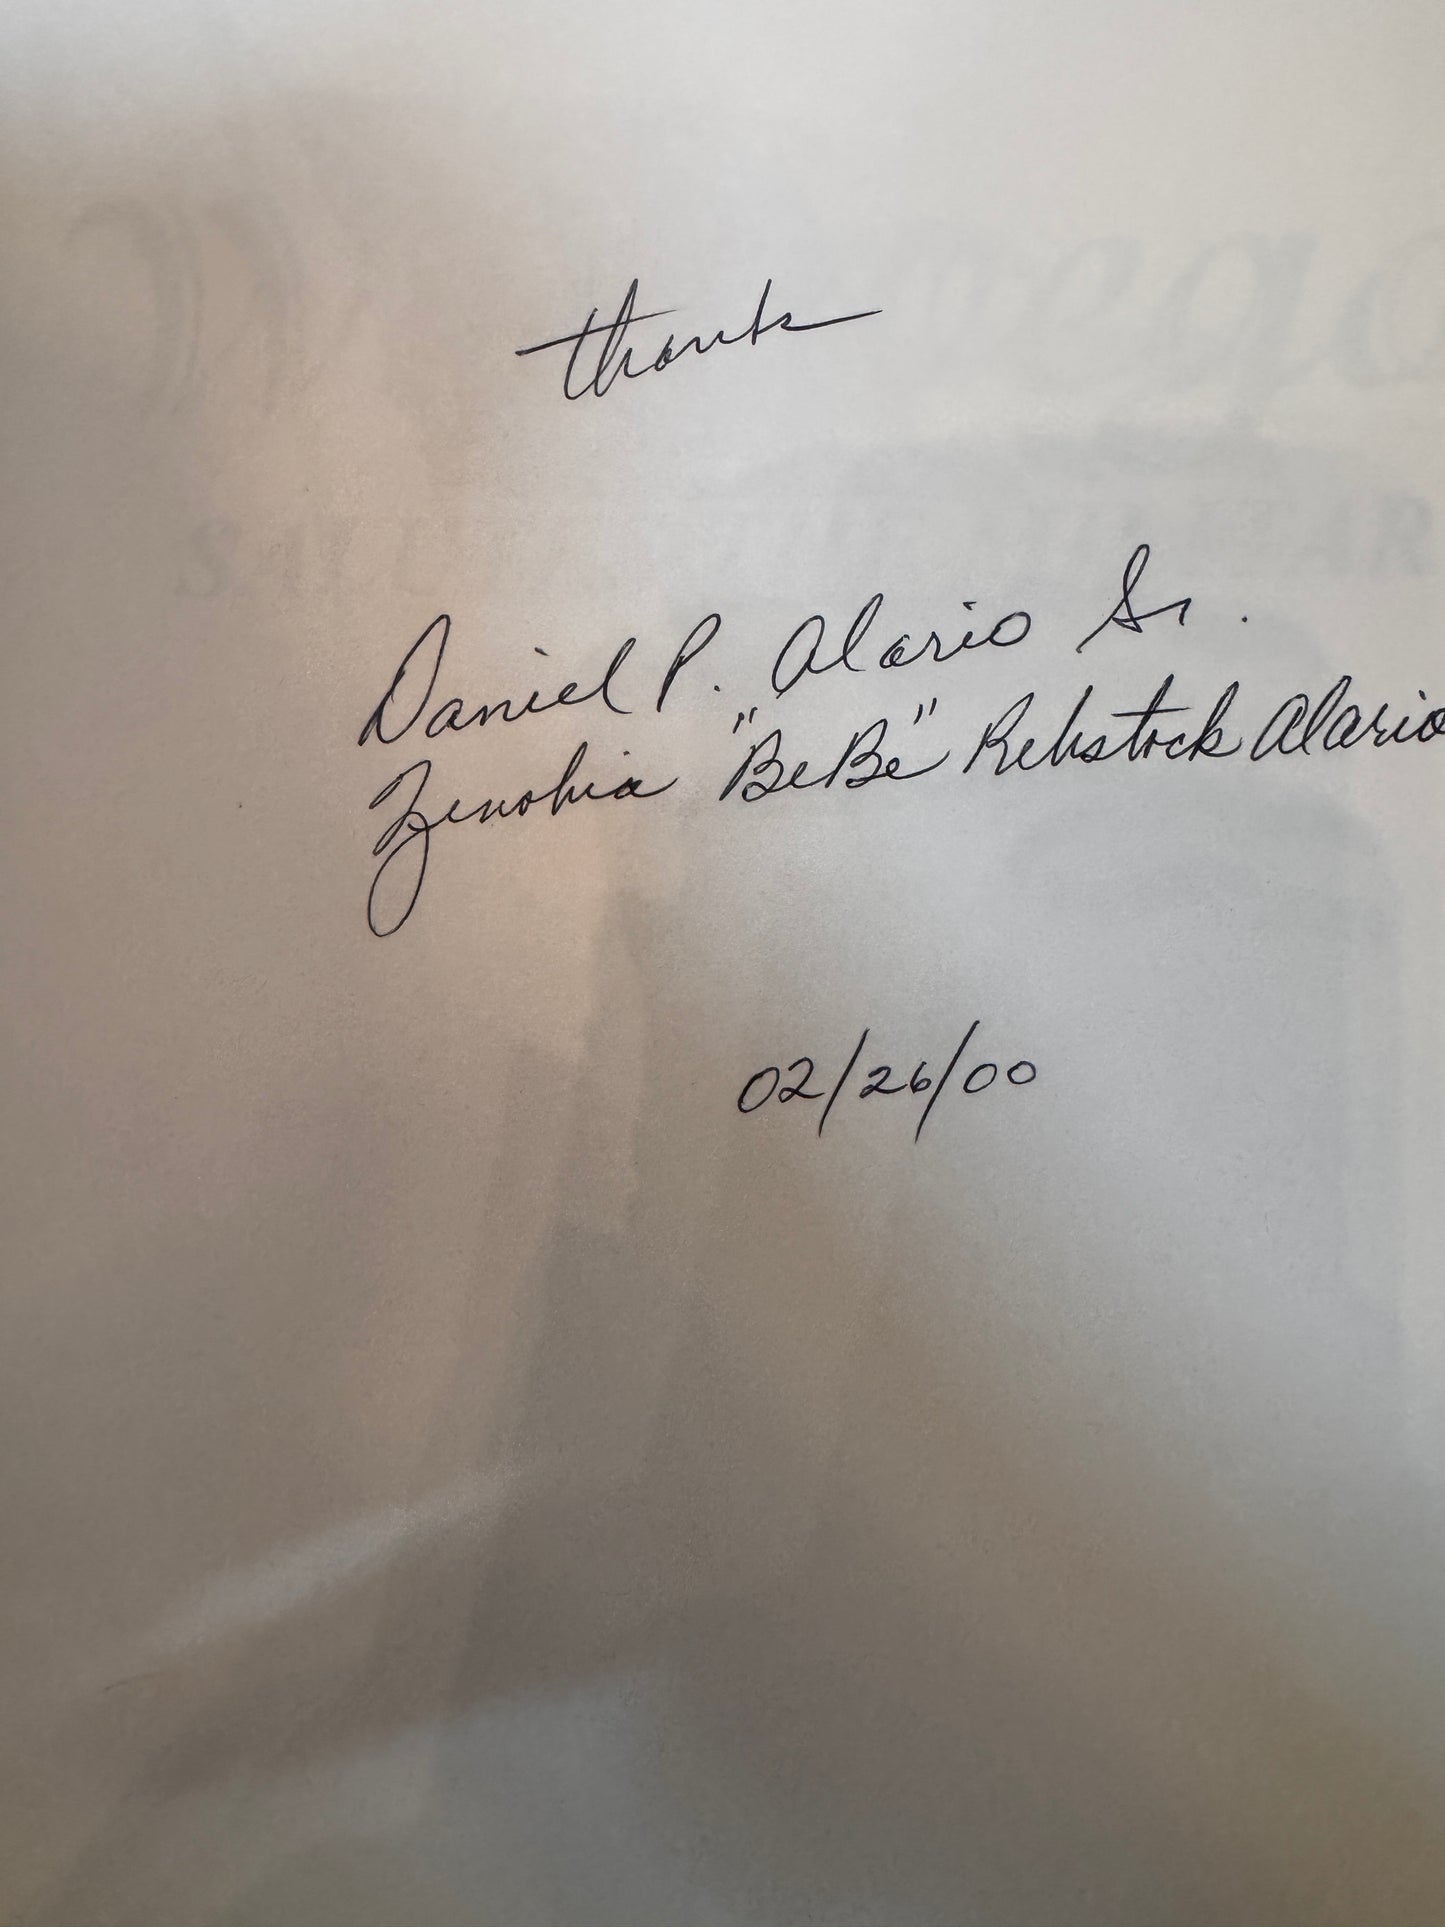 Thanks
Daniel P. Alario Sr.
Zenobia "BeBe" Rebstock Alario
02/26/00